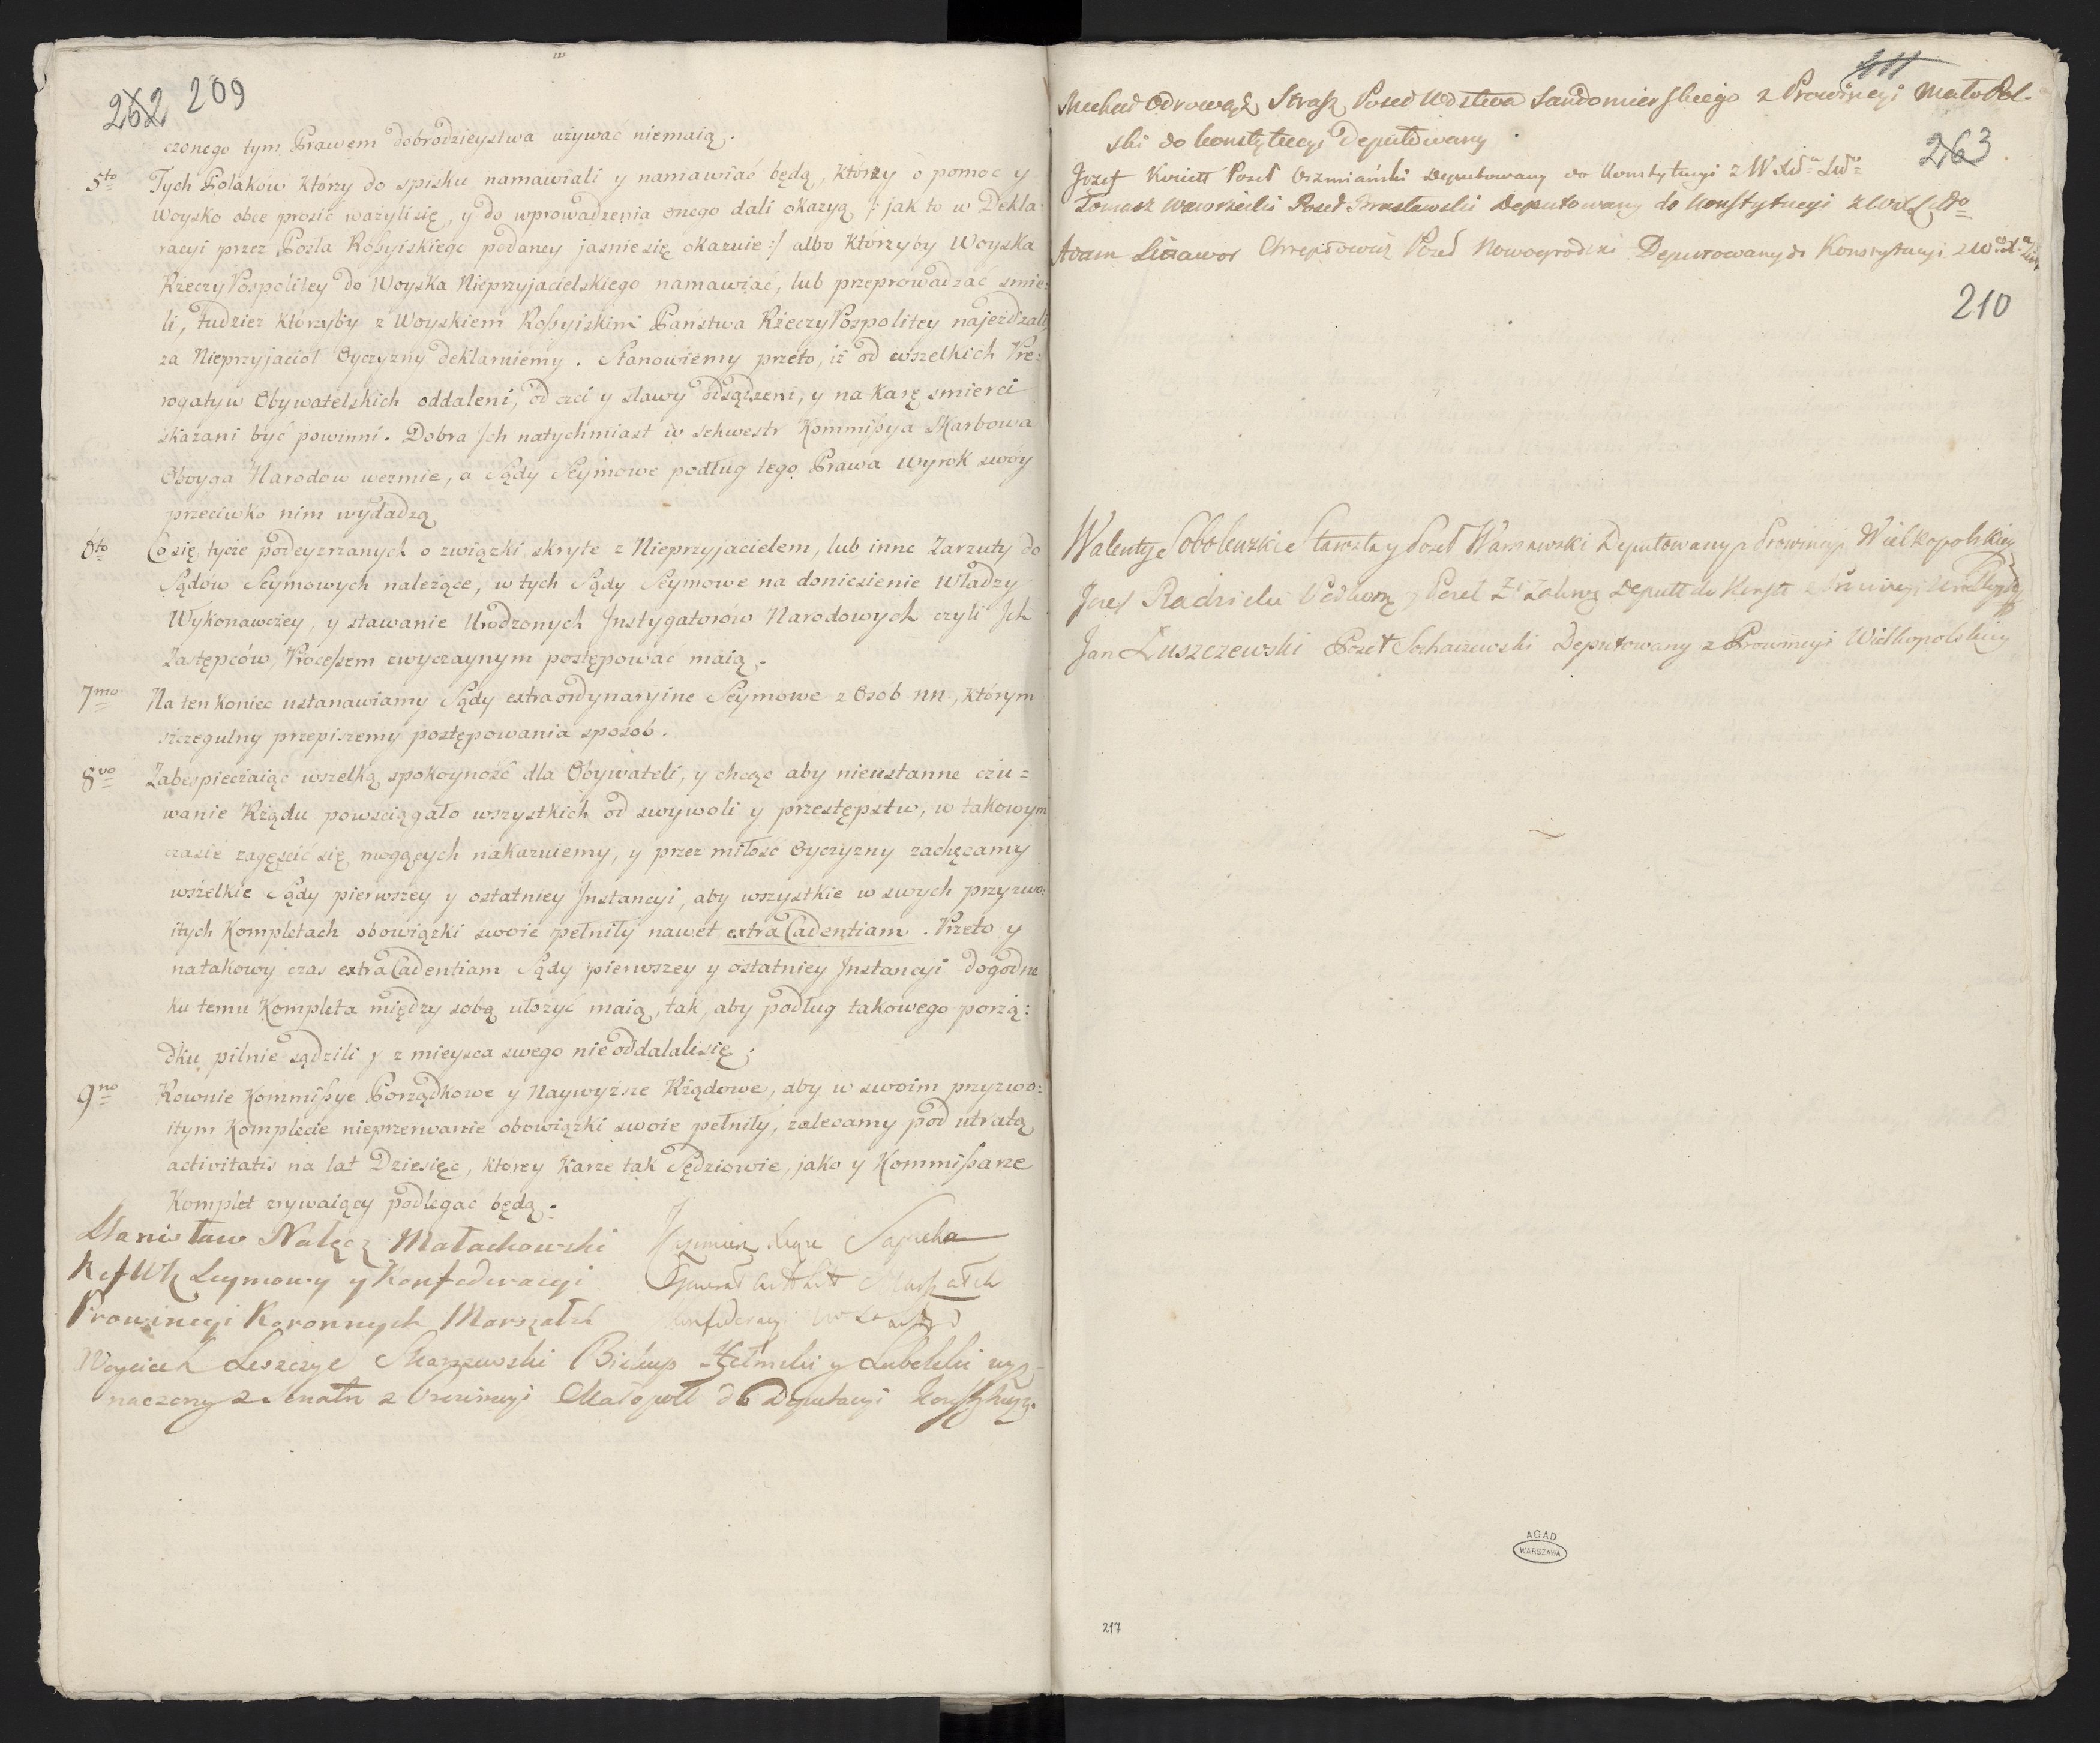 262 209
czonego tym Prawem dobrodzieystwa używać niemaią.
5to Tych Polaków którzy do spisku namawiali y namawiać będą, którzy o pomoc y
woysko obce prosić ważyli się, y do wprowadzenia onego dali okazyą /: jak to w Dekla:
racyi przez Posła Rossyiskiego podaney jasnie się okazuie :/ albo którzyby Woyska
RzeczyPospolitey do Woyska Nieprzyjacielskiego namawiać, lub przeprowadzać smie:
li, tudzież którzyby z Woyskiem Rossyiskim Państwa RzeczyPospolitey najeżdzali,
za Nieprzyjaciół Oyczyzny deklarujemy. Stanowiemy przeto, iż od wszelkich Pre:
rogatyw Obywatelskich oddaleni, od czci y sławy odsądzeni, y na karę smierci
skazani być powinni. Dobra Ich natychmiast w sekwestr Kommissya Skarbowa
Oboyga Narodow wezmie, a Sądy Seymowe podług tego Prawa wyrok swoy
przeciwko nim wydadzą
6to Co się tycze podeyzrzanych o związki skryte z Nieprzyjacielem, lub inne Zarzuty do
Sądów Seymowych należące, w tych Sądy Seymowe na doniesienie Władzy
Wykonawczey, y stawanie Urodzonych Instygatorów Narodowych czyli Ich
Zastępców, Processem zwyczaynym postępować maią.
7mo Na ten koniec ustanawiamy Sądy extraordynaryine Seymowe z Osób NN., którym
szczegulny przepiszemy postępowania sposób.
8vo Zabespieczaiąc wszelką spokoyność dla Obywateli, y chcąc aby nieustanne czu=
wanie Rządu powsciągało wszystkich od swywoli y przestępstw, w takowym
czasie zagęscić się mogących nakazuiemy, y przez miłosc Oyczyzny zachęcamy
wszelkie Sądy pierwszey y ostatniey Instancyi, aby wszystkie w swych przyzwo:
itych Kompletach obowiązki swoie pełniły nawet extra Cadentiam. Przeto y
na takowy czas extra Cadentiam Sądy pierwszey y ostatniey Instancyi dogodne
ku temu Kompleta między sobą ułożyć maią, tak, aby podług takowego porzą:
dku pilnie sądzili y z mieysca swego nie oddalali się;
9no Rownie Kommissye Porządkowe y Naywyższe Rządowe, aby w swoim przyzwo:
itym komplecie nieprzerwanie obowiązki swoie pełniły, zalecamy pod utratą
activitatis na lat Dziesięc, ktorey karze tak Sędziowie, jako y Kommissarze
Komplet zrywaiący podlegać będą.
Stanisław Nałęcz Małachowski
Ref WK Seymowy y Konfederacyi
Prowincyi Koronnych Marszałek
Kazimierz Xże Sapieha
Generał Artt Litt Marszałek
Konfederacyi
Woyciech Leszczyc Skarszewski Biskup Chełmski y Lubelski wyz-
naczony z Senatu z Prowincyi Małopol do Deputacyi Konstytucyi.
411
Michał Odrowąż Strasz Poseł Wdztwa Sandomierskiego z Prowincyi MałoPol-
ski do konstytucyi Deputowany
263
Jozef Kociełł Poseł Oszmiański Deputowany do Konstytucyi z W. Xa Lo
Tomasz Wawrzecki Poseł Brasławski Deputowany do Konstytucyi z W X Litto
Adam Litawor Chreptowicz Poseł Nowogrodzki Deputowany do Konstytucyi z W. X. Lit
210
Walenty Sobolewski Starosta y Poseł Warszawski Deputowany z Prowincyi Wielkopolskiey
Jozef Radzicki Podkom y Poseł Zi Zakroz Deputt do Konstt z Prowincyi Wielkopolskiey
Jan Łuszczewski Poseł Sochaczewski Deputowany z Prowincyi Wielkopolskiey
AGAD
WARSZAWA
217